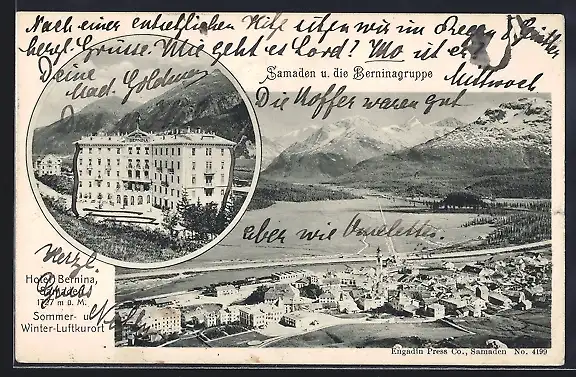 Nach einer entsetzlichen Hitze sitzen wir im Regen
herzl. Grüsse. Wie geht es Lord? Wo ist er?
Deine
Mad. Goldmann
Mittwoch
Samaden u. die Berninagruppe
Die Koffer waren gut
aber wie Omelettes
Herzl.
Gruss
Hotel Bernina,
Samaden
1727 m ü. M.
Sommer- u.
Winter-Luftkurort
Engadin Press Co., Samaden No. 4199